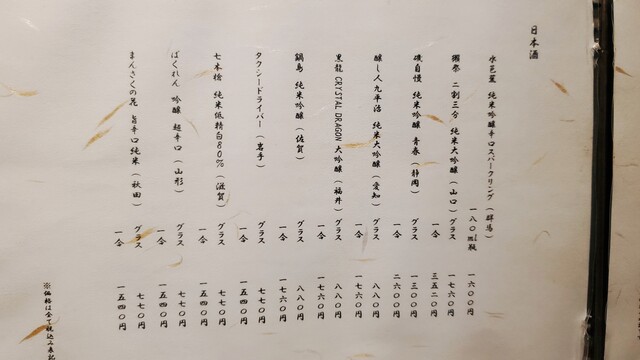 日本酒
水芭蕉 純米吟醸辛口スパークリング(群馬) 一八〇ml瓶 一六〇〇円
獺祭 二割三分 純米大吟醸(山口) グラス 一七六〇円
一合 三五二〇円
磯自慢 純米吟醸 青春(静岡) グラス 一三〇〇円
一合 二六〇〇円
醸し人九平次 純米大吟醸(愛知) グラス 八八〇円
一合 一七六〇円
黒龍 CRYSTAL DRAGON 大吟醸(福井) グラス 八八〇円
一合 一七六〇円
鍋島 純米吟醸(佐賀) グラス 八八〇円
一合 一七六〇円
タクシードライバー(岩手) グラス 七七〇円
一合 一五四〇円
七本槍 純米低精白80%(滋賀) グラス 七七〇円
一合 一五四〇円
ばくれん 吟醸 超辛口(山形) グラス 七七〇円
一合 一五四〇円
まんさくの花 旨辛口純米(秋田) グラス 七七〇円
一合 一五四〇円
※価格は全て税込み表記